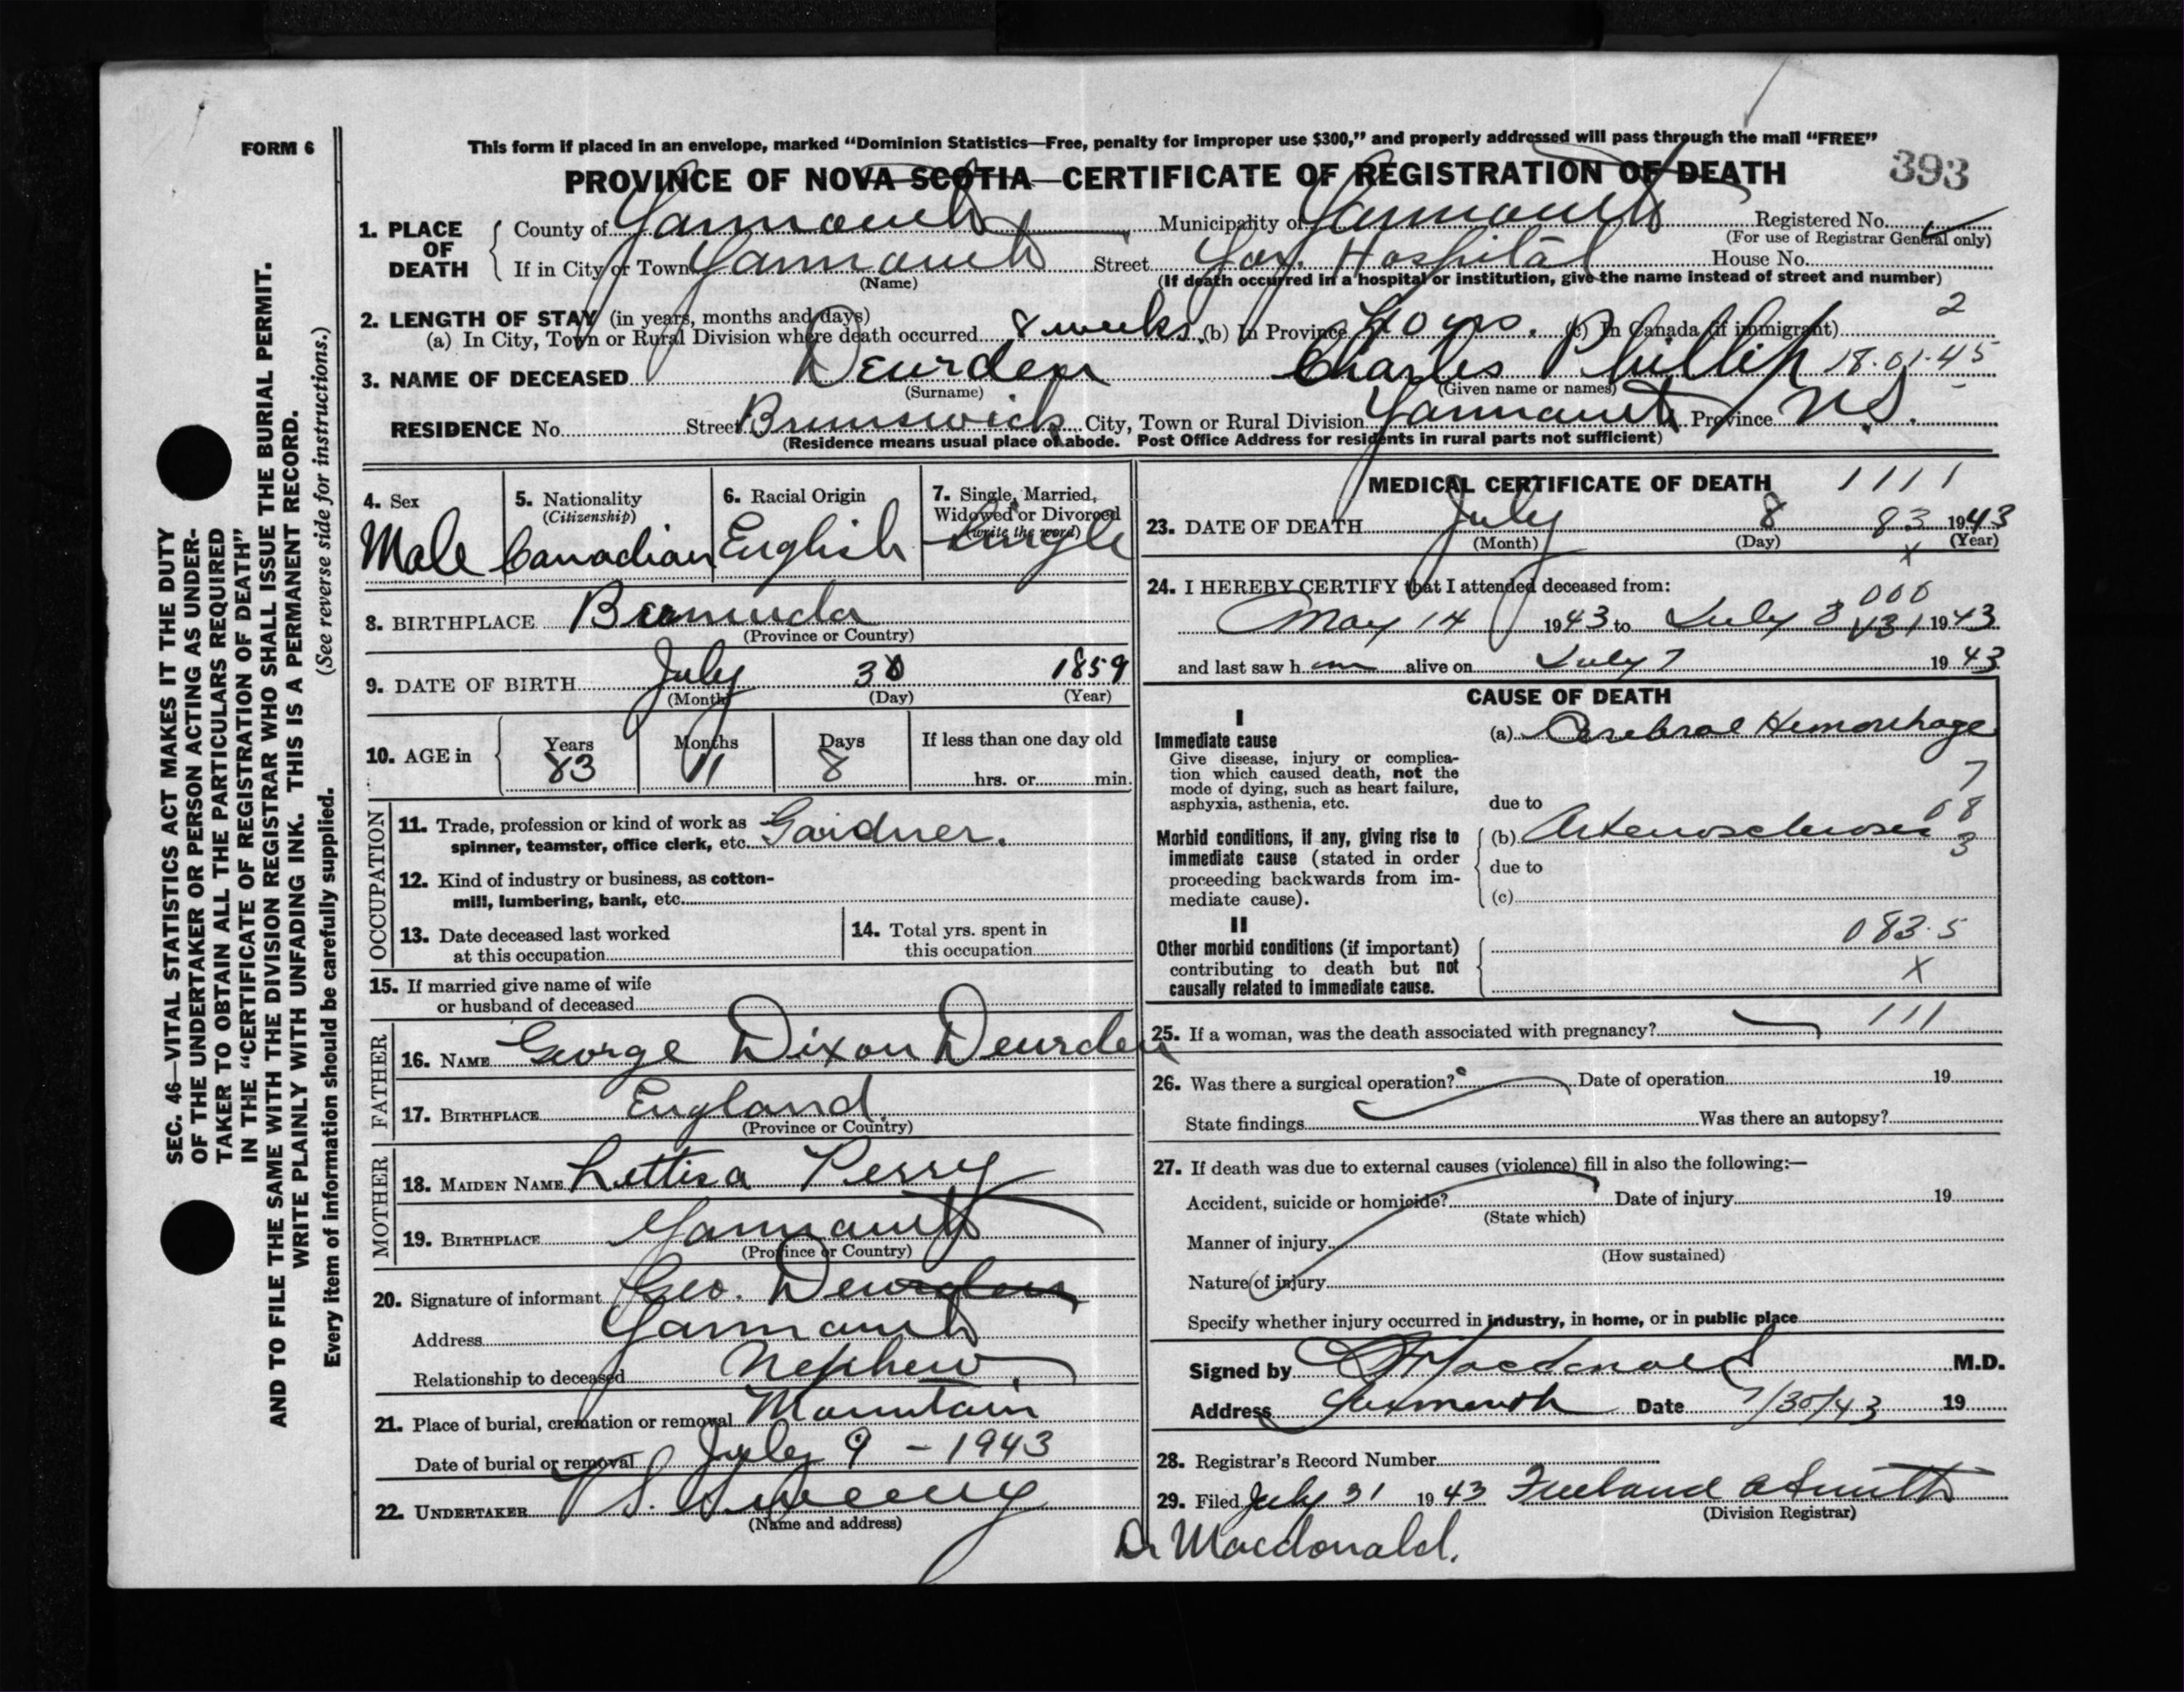 FORM 6
This form if placed in an envelope, marked “Dominion Statistics—Free, penalty for improper use $300,” and properly addressed will pass through the mail “FREE”
PROVINCE OF NOVA SCOTIA—CERTIFICATE OF REGISTRATION OF DEATH 393
1. PLACE OF DEATH County of Yarmouth Municipality of Yarmouth Registered No.
(For use of Registrar General only)
If in City or Town Yarmouth Street Yar. Hospital House No.
(Name) (If death occurred in a hospital or institution, give the name instead of street and number)
2. LENGTH OF STAY (in years, months and days) 2
(a) In City, Town or Rural Division where death occurred 8 weeks (b) In Province 40 yrs. (c) In Canada (if immigrant)
3. NAME OF DECEASED Deurden Charles Phillip 18-01-45
(Surname) (Given name or names)
RESIDENCE No. Street Brunswick City, Town or Rural Division Yarmouth Province N.S.
(Residence means usual place of abode. Post Office Address for residents in rural parts not sufficient)
4. Sex 5. Nationality 6. Racial Origin 7. Single, Married,
(Citizenship) Widowed or Divorced
(write the word)
Male Canadian English Single
8. BIRTHPLACE Bermuda
(Province or Country)
9. DATE OF BIRTH July 30 1859
(Month) (Day) (Year)
10. AGE in Years Months Days If less than one day old
83 11 8 hrs. or min.
OCCUPATION
11. Trade, profession or kind of work as
spinner, teamster, office clerk, etc. Gardner.
12. Kind of industry or business, as cotton-
mill, lumbering, bank, etc.
13. Date deceased last worked
at this occupation
14. Total yrs. spent in
this occupation
15. If married give name of wife
or husband of deceased
FATHER
16. NAME George Dixon Deurden
17. BIRTHPLACE England.
(Province or Country)
MOTHER
18. MAIDEN NAME Lettisa Perry
19. BIRTHPLACE Yarmouth
(Province or Country)
20. Signature of informant Geo. Deurden
Address Yarmouth
Relationship to deceased Nephew
21. Place of burial, cremation or removal Mountain
Date of burial or removal July 9 - 1943
22. UNDERTAKER V. S. Sweeny
(Name and address)
MEDICAL CERTIFICATE OF DEATH 1111
23. DATE OF DEATH July 8 83 1943
(Month) (Day) (Year)
x
24. I HEREBY CERTIFY that I attended deceased from:
000
May 14 1943 to July 8 1943
and last saw him alive on July 7 1943
CAUSE OF DEATH
I
Immediate cause (a) Cerebral Hemorrhage
Give disease, injury or complica-
tion which caused death, not the
mode of dying, such as heart failure,
asphyxia, asthenia, etc. due to
7
08
3
Morbid conditions, if any, giving rise to (b) Arteriosclerosis
immediate cause (stated in order
proceeding backwards from im- due to
mediate cause). (c)
II
Other morbid conditions (if important) 083.5
contributing to death but not x
causally related to immediate cause.
25. If a woman, was the death associated with pregnancy? 111
26. Was there a surgical operation? Date of operation 19
State findings Was there an autopsy?
27. If death was due to external causes (violence) fill in also the following:—
Accident, suicide or homicide? Date of injury 19
(State which)
Manner of injury
(How sustained)
Nature of injury
Specify whether injury occurred in industry, in home, or in public place
Signed by Macdonald M.D.
Address Yarmouth Date 7/30/43 19
28. Registrar's Record Number
29. Filed July 31 1943 Freeland A Smith
(Division Registrar)
Dr Macdonald.
SEC. 46—VITAL STATISTICS ACT MAKES IT THE DUTY
OF THE UNDERTAKER OR PERSON ACTING AS UNDER-
TAKER TO OBTAIN ALL THE PARTICULARS REQUIRED
IN THE “CERTIFICATE OF REGISTRATION OF DEATH”
AND TO FILE THE SAME WITH THE DIVISION REGISTRAR WHO SHALL ISSUE THE BURIAL PERMIT.
WRITE PLAINLY WITH UNFADING INK. THIS IS A PERMANENT RECORD.
Every item of information should be carefully supplied. (See reverse side for instructions.)